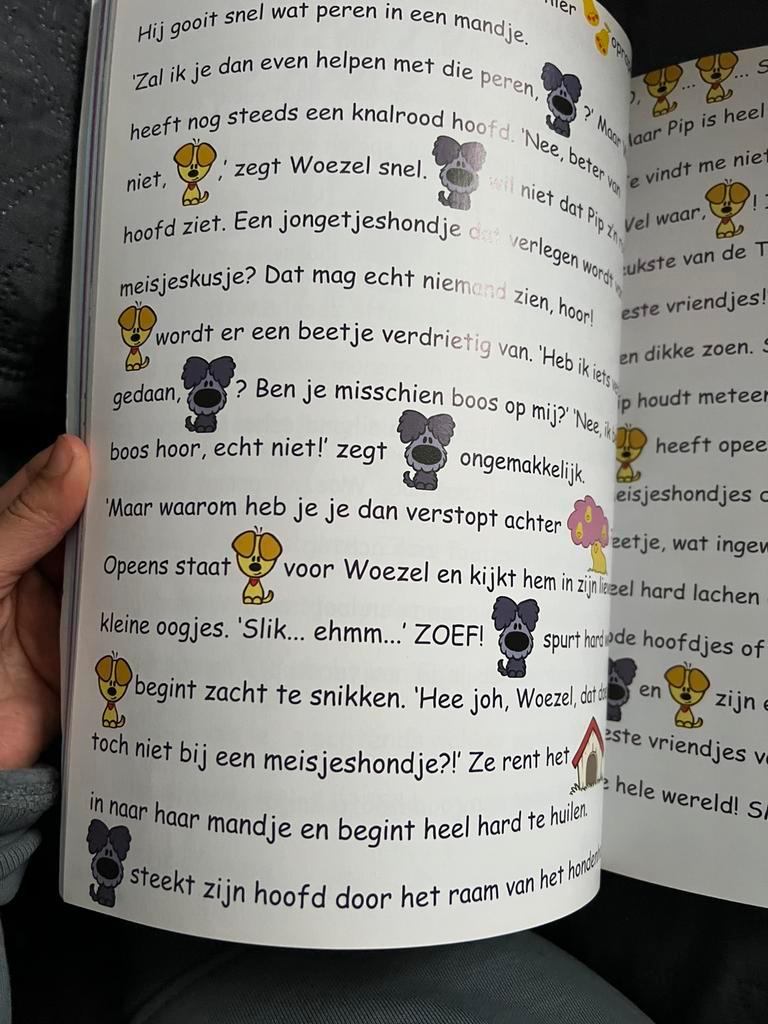 hier
Hij gooit snel wat peren in een mandje.
'Zal ik je dan even helpen met die peren, ?' Maar
heeft nog steeds een knalrood hoofd. 'Nee, beter van
niet, ,' zegt Woezel snel. wil niet dat Pip z'n
hoofd ziet. Een jongetjeshondje dat verlegen wordt
meisjeskusje? Dat mag echt niemand zien, hoor!
wordt er een beetje verdrietig van. 'Heb ik iets
gedaan, ? Ben je misschien boos op mij?' 'Nee, ik
boos hoor, echt niet!' zegt ongemakkelijk.
'Maar waarom heb je je dan verstopt achter
Opeens staat voor Woezel en kijkt hem in zijn
kleine oogjes. 'Slik... ehmm...' ZOEF! spurt hard
begint zacht te snikken. 'Hee joh, Woezel, dat
toch niet bij een meisjeshondje?!' Ze rent het
in naar haar mandje en begint heel hard te huilen.
steekt zijn hoofd door het raam van het
... ...
Pip is heel
vindt me
waar, !
van de
vriendjes!
en dikke zoen.
houdt
heeft
wat
hard lachen
hoofdjes of
en zijn
vriendjes
hele wereld!